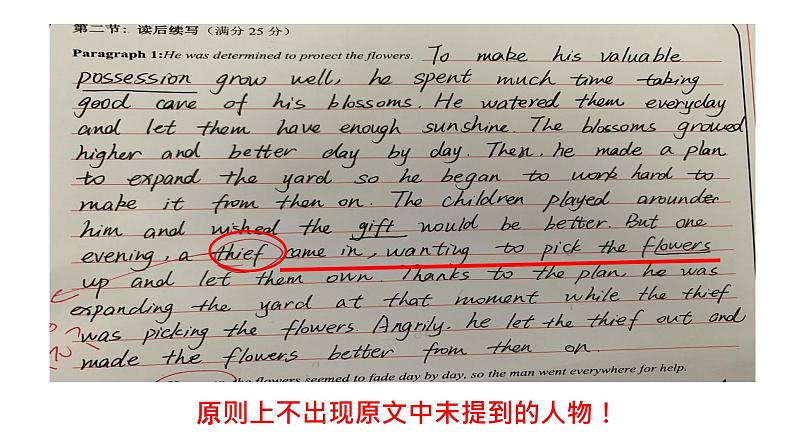 第二节：读后续写（满分 25 分）
Paragraph 1:He was determined to protect the flowers. To make his valuable
possession grow well, he spent much time taking
good cave of his blossoms. He watered them everyday
and let them have enough sunshine. The blossoms growed
higher and better day by day. Then, he made a plan
to expand the yard so he began to work hard to
make it from then on. The children played arounder
him and wished the gift would be better. But one
evening, a thief came in, wanting to pick the flowers
up and let them own. Thanks to the plan, he was
expanding the yard at that moment while the thief
was picking the flowers. Angrily, he let the thief out and
made the flowers better from then on.
the flowers seemed to fade day by day, so the man went everywhere for help.
原则上不出现原文中未提到的人物！